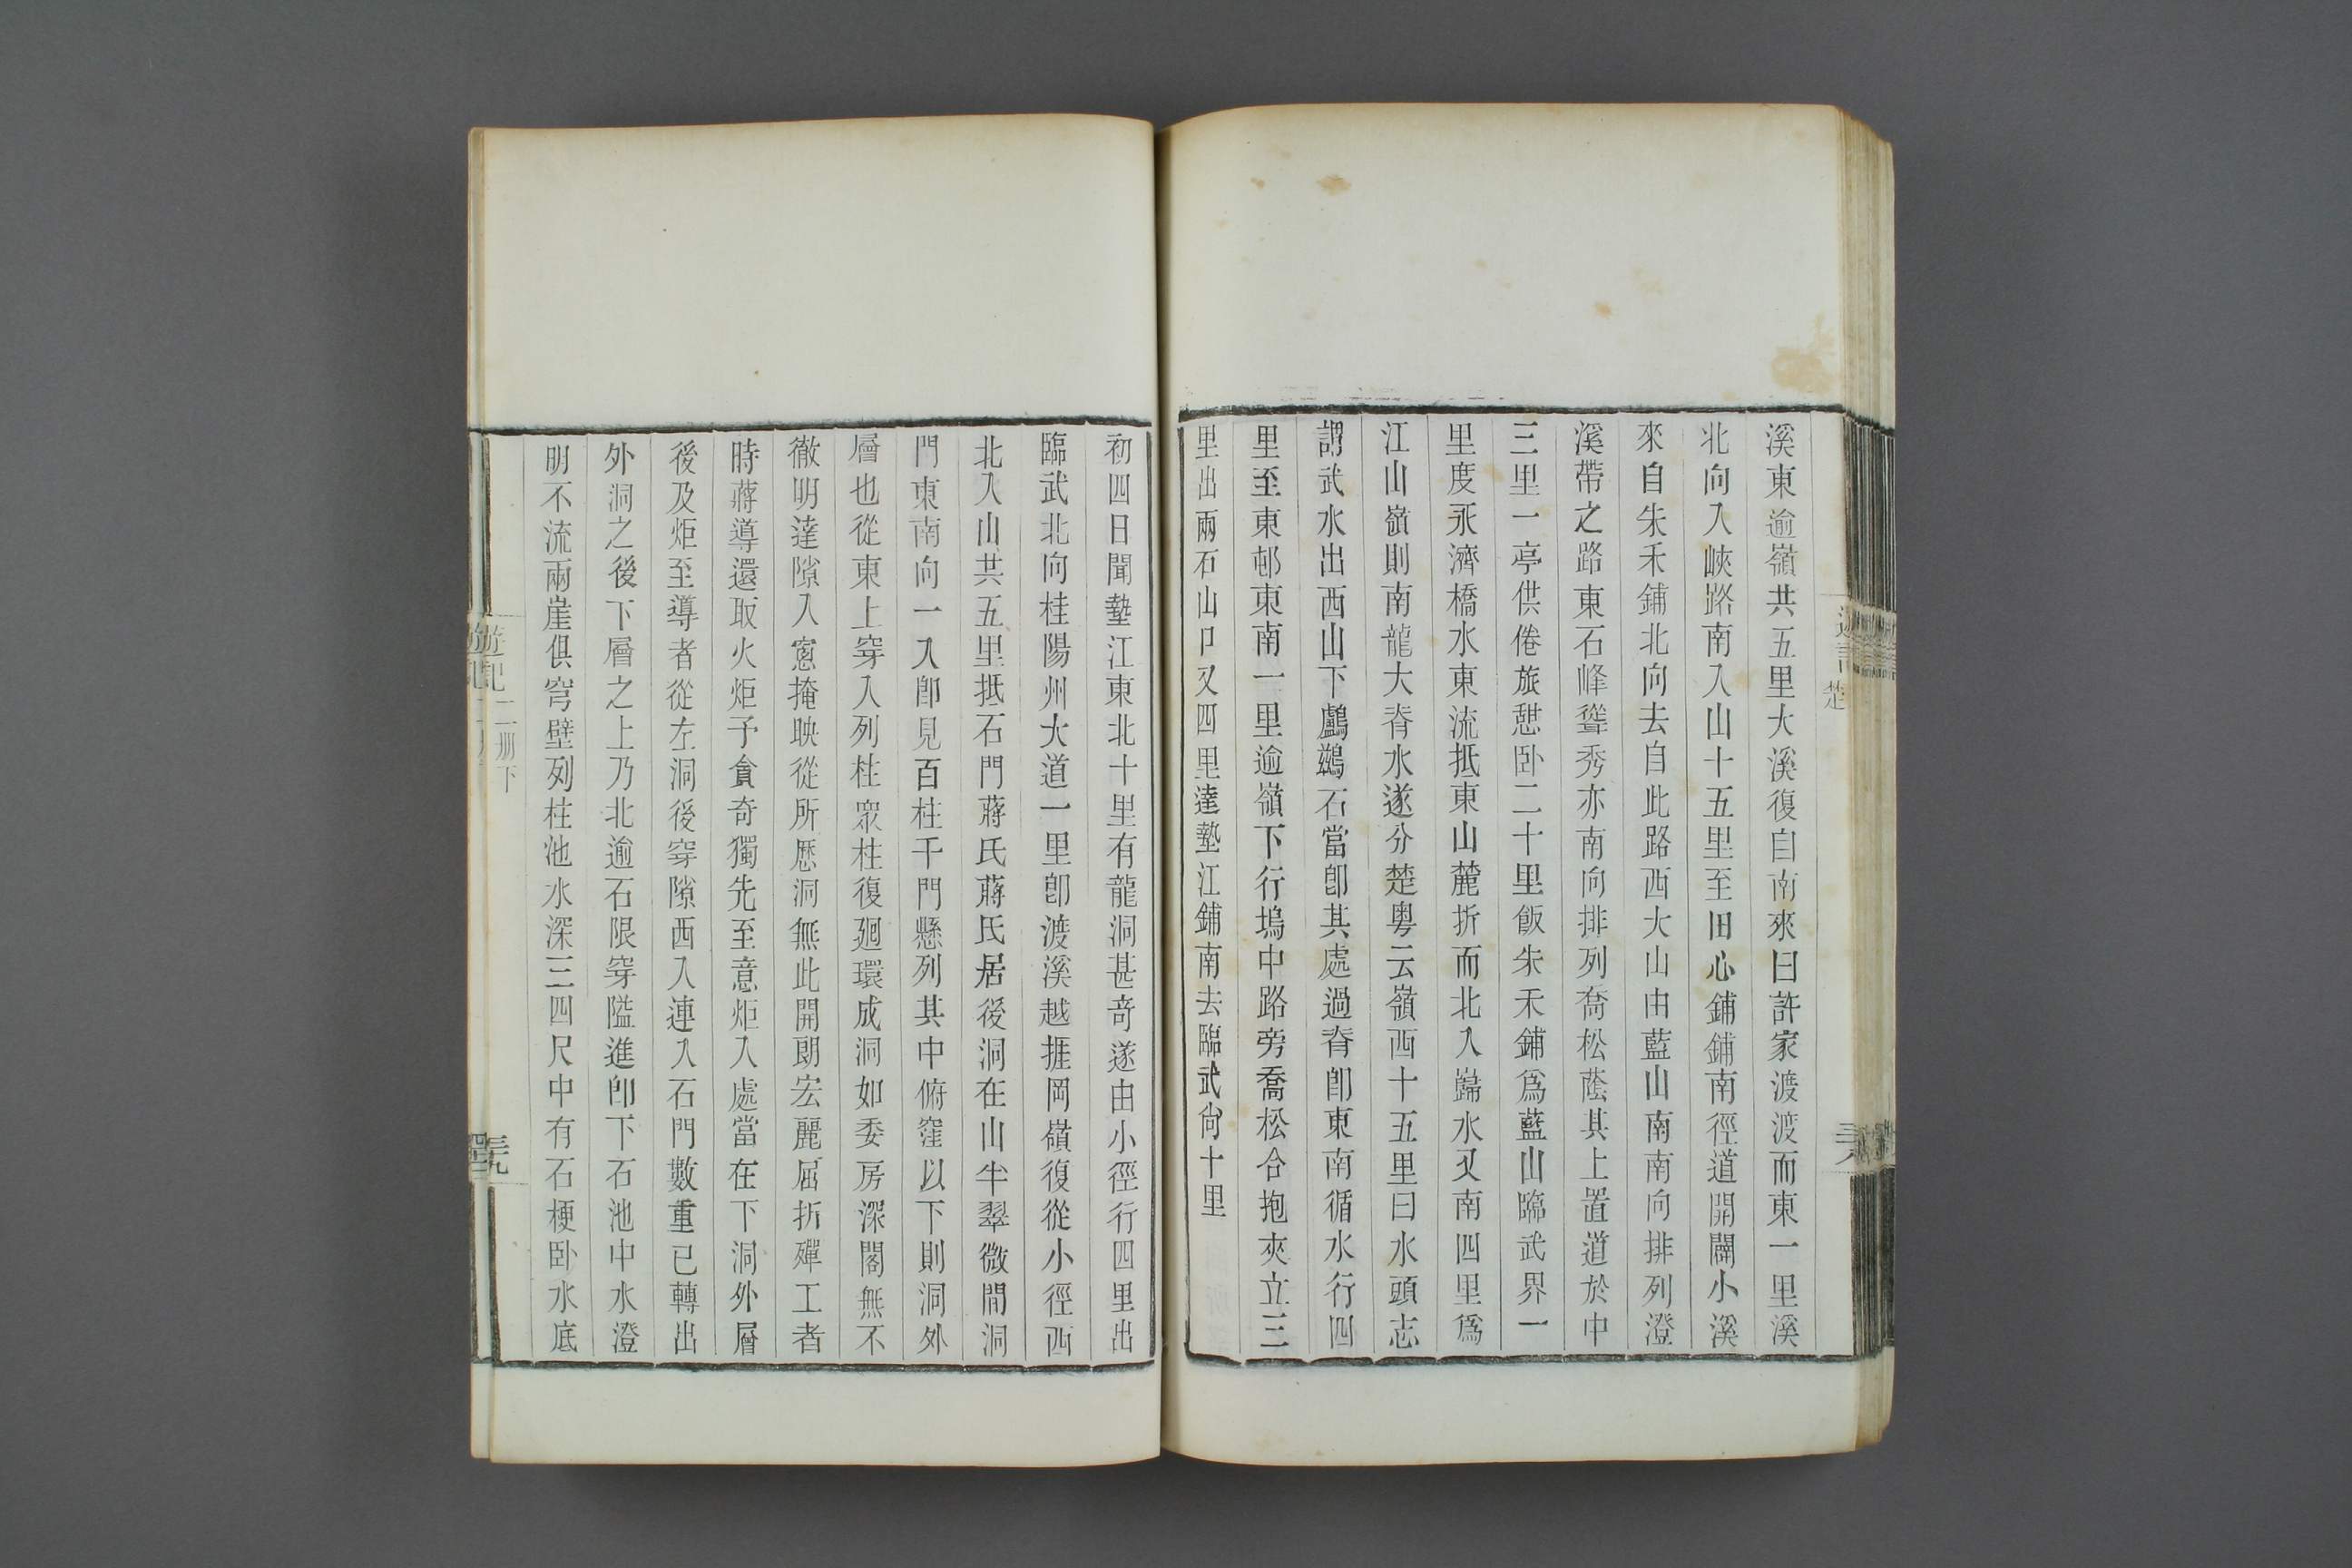 溪東逾嶺共五里大溪復自南來曰許家渡渡而東一里溪
北向入峽路南入山十五里至田心鋪鋪南徑道開闢小溪
來自朱禾鋪北向去自此路西大山由藍山南南向排列澄
溪帶之路東石峰聳秀亦南向排列喬松蔭其上置道於中
三里一亭供倦旅憇卧二十里飯朱禾鋪爲藍山臨武界一
里度永濟橋水東流抵東山麓折而北入巋水又南四里爲
江山嶺則南龍大脊水遂分楚粵云嶺西十五里曰水頭志
謂武水出西山下鸕鷀石當卽其處過脊卽東南循水行四
里至東邨東南一里逾嶺下行塢中路旁喬松合抱夾立三
里出兩石山口又四里達墊江鋪南去臨武尙十里
初四日聞墊江東北十里有龍洞甚奇遂由小徑行四里出
臨武北向桂陽州大道一里卽渡溪越捱岡嶺復從小徑西
北入山共五里抵石門蔣氏蔣氏居後洞在山半翠微間洞
門東南向一入卽見百柱千門懸列其中俯窪以下則洞外
層也從東上穿入列柱衆柱復廻環成洞如委房深閣無不
徹明達隙入窻掩映從所歷洞無此開朗宏麗屈折殫工者
時蔣導還取火炬予貪奇獨先至意炬入處當在下洞外層
後及炬至導者從左洞後穿隙西入連入石門數重已轉出
外洞之後下層之上乃北逾石限穿隘進卽下石池中水澄
明不流兩崖俱穹壁列柱池水深三四尺中有石梗卧水底
遊記
二册下